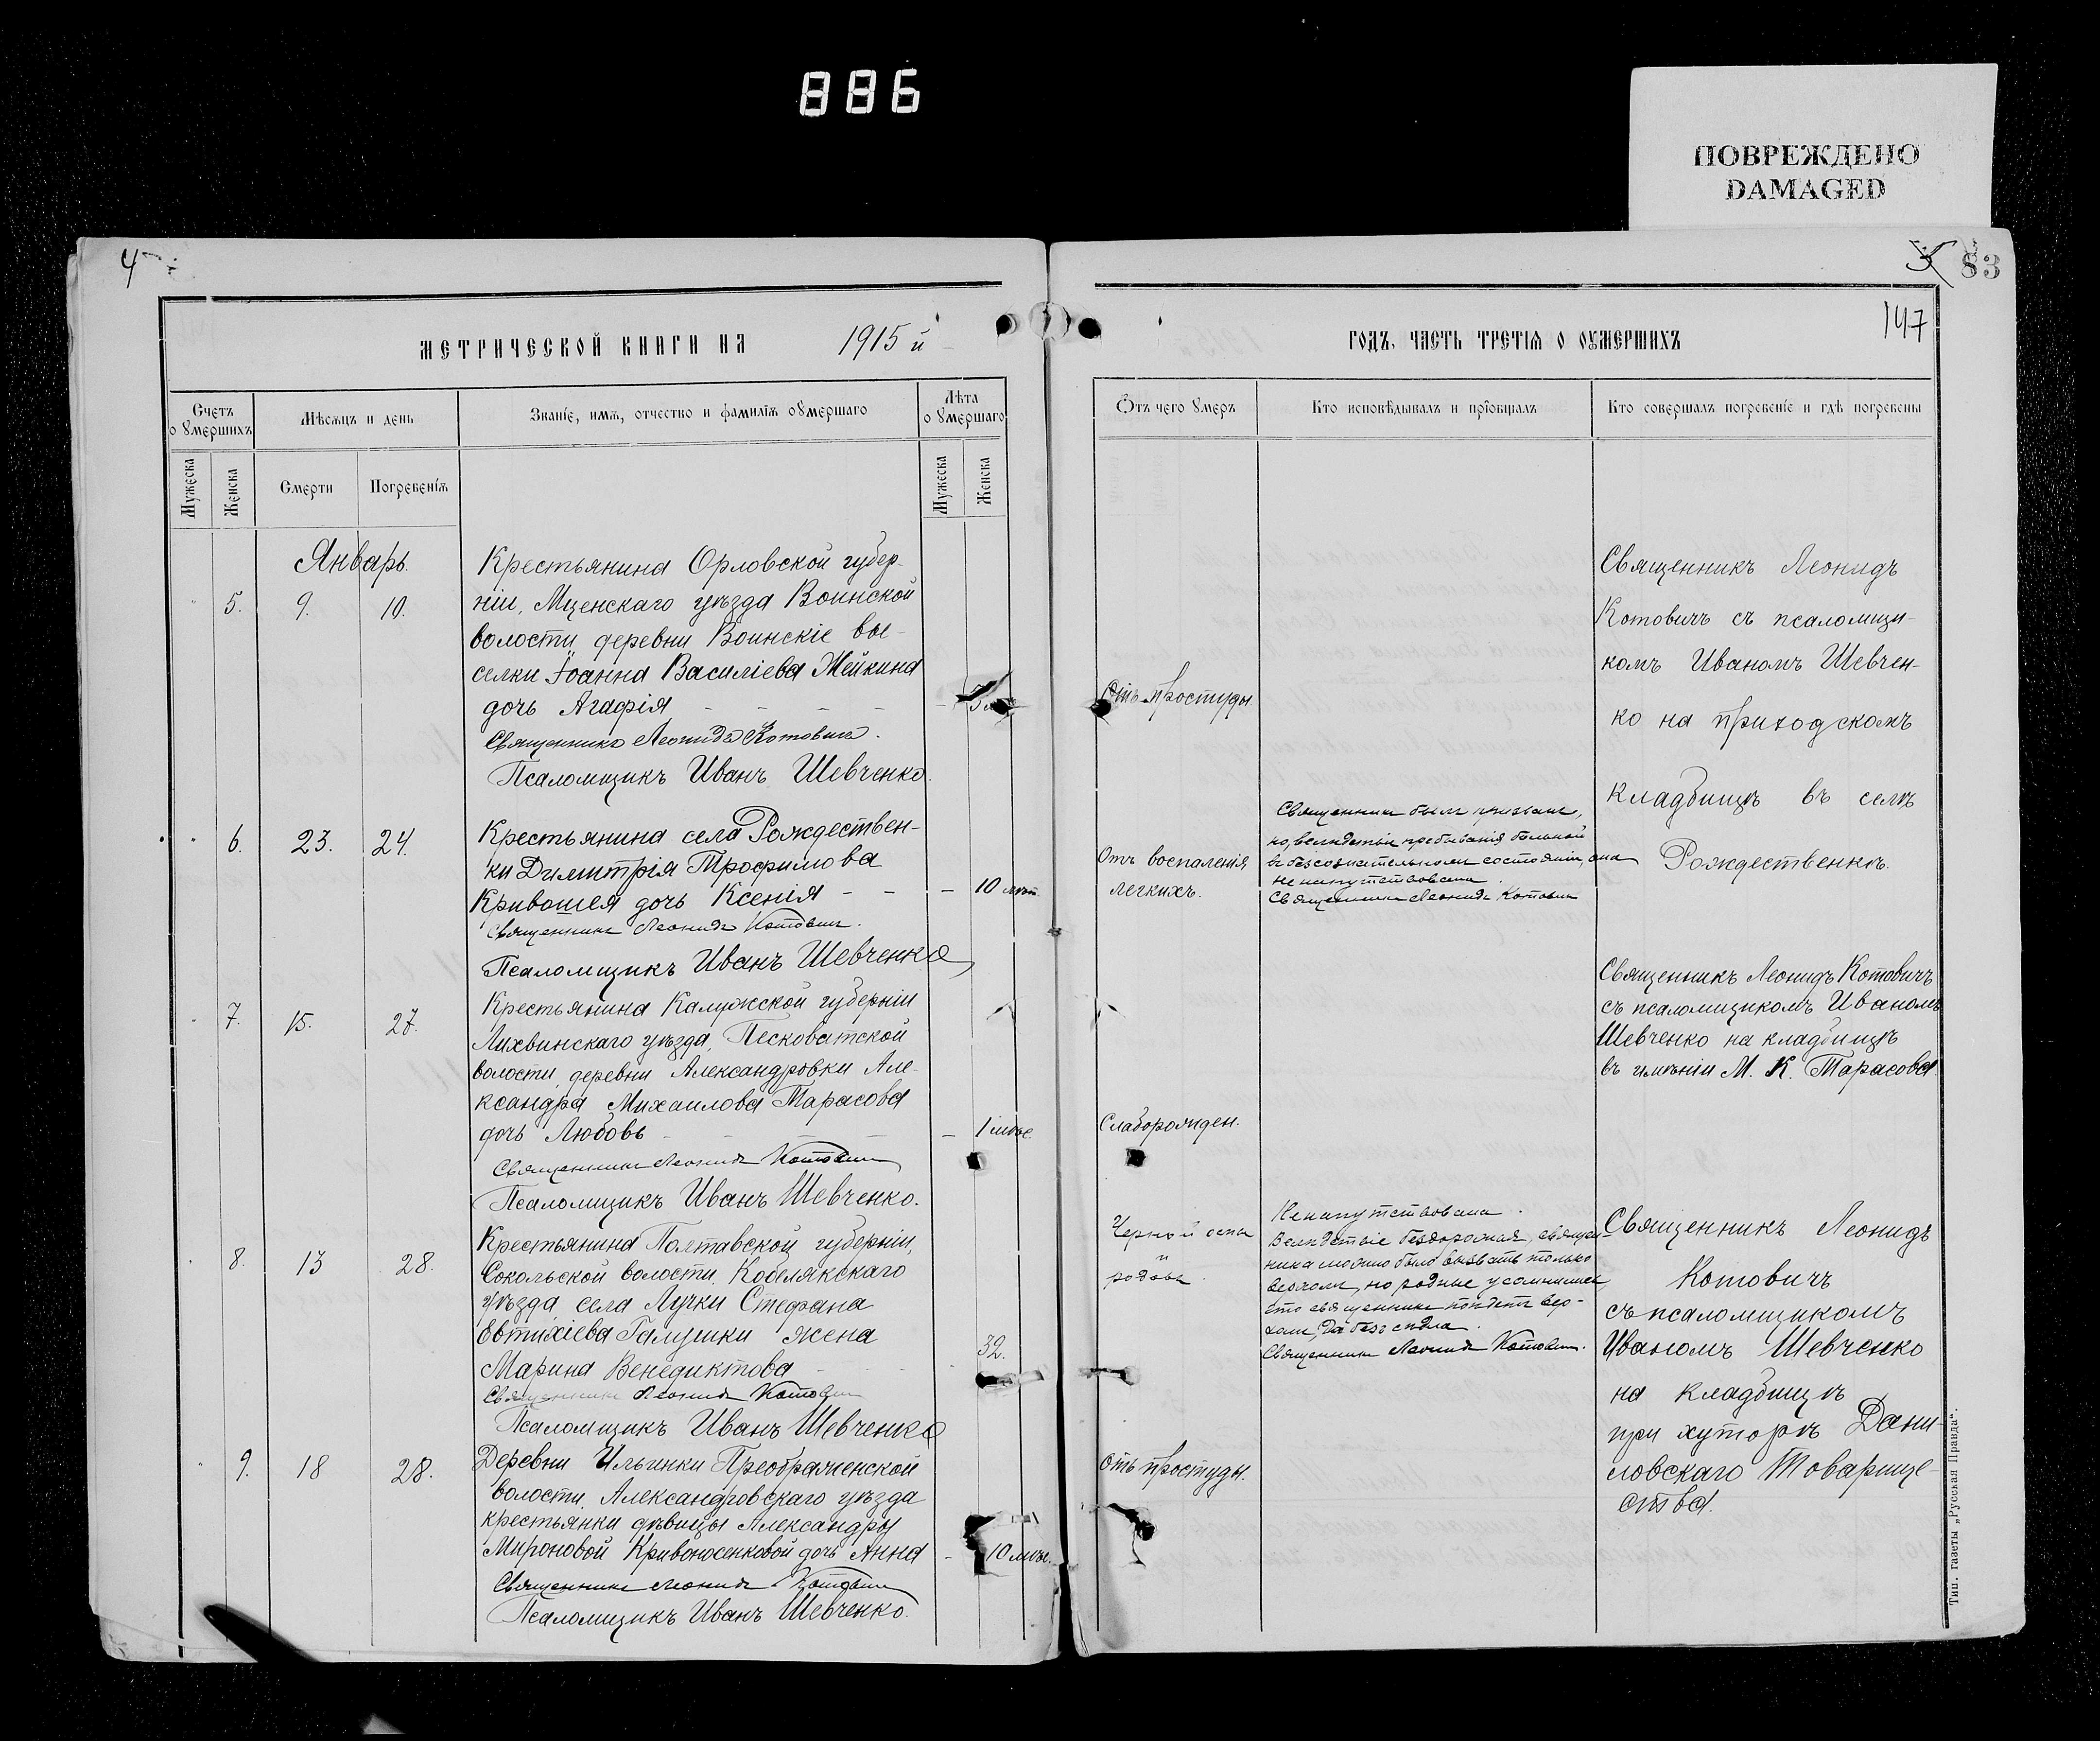 886
ПОВРЕЖДЕНО
DAMAGED
4
83
147
МЕТРИЧЕСКОЙ КНИГИ НА 1915 й
Счетъ оумершихъ
Мѣсяцъ и день
Званіе, имя, отчество и фамилія оумершаго
Лѣта оумершаго
Мужеска
Женска
Смерти
Погребенія
Мужеска
Женска
Январь.
5. 9. 10.
Крестьянина Орловской губер-
ніи, Мценскаго уѣзда Воинской
волости, деревни Воинскіе вы-
селки Іоанна Василіева Мейкина
дочь Агафія
Священникъ Леонидъ Котовичъ.
Псаломщикъ Иванъ Шевченко.
6. 23. 24.
Крестьянина села Рождествен-
ки Димитрія Трофимова
Кривошея дочь Ксенія - - - 10 лѣт.
Священникъ Леонидъ Котовичъ.
Псаломщикъ Иванъ Шевченко
7. 15. 27.
Крестьянина Калужской губерніи
Лихвинскаго уѣзда, Песковатской
волости, деревни Александровки Але-
ксандра Михаилова Тарасова
дочь Любовь - - - - 1 мѣс.
Священникъ Леонидъ Котовичъ
Псаломщикъ Иванъ Шевченко.
8. 13 28.
Крестьянина Полтавской губерніи,
Сокольской волости, Кобелякскаго
уѣзда села Лучки Стефана
Евтихіева Галушки жена
Марина Венедиктова - - - 32.
Священникъ Леонидъ Котовичъ
Псаломщикъ Иванъ Шевченко
9. 18 28.
Деревни Ильинки Преображенской
волости, Александровскаго уѣзда
крестьянки дѣвицы Александры
Мироновой Кривоносенковой дочь Анна - 10 мѣс.
Священникъ Леонидъ Котовичъ
Псаломщикъ Иванъ Шевченко.
ГОДЪ, ЧАСТЬ ТРЕТІЯ О ОУМЕРШИХЪ
Отъ чего умеръ
Кто исповѣдывалъ и пріобщалъ
Кто совершалъ погребеніе и гдѣ погребены
Отъ простуды
Священникъ Леонидъ
Котовичъ съ псаломщи-
комъ Иваномъ Шевчен-
ко на приходскомъ
кладбищѣ въ селѣ
Рождественкѣ.
Отъ воспаленія
легкихъ.
Священникъ былъ призванъ,
но, вслѣдствіе пребыванія больной
въ безсознательномъ состояніи, она
не напутствована.
Священникъ Леонидъ Котовичъ
Слаборожден.
Священникъ Леонидъ Котовичъ
съ псаломщикомъ Иваномъ
Шевченко на кладбищѣ
въ имѣніи М. К. Тарасова.
Черной оспы
и
родовъ.
Ненапутствована.
Вслѣдствіе бездорожья, священ-
ника можно было вызвать только
верхомъ, но родные усомнились,
что священникъ поѣдетъ вер-
хомъ,
Священникъ Леонидъ Котовичъ.
Священникъ Леонидъ
Котовичъ
съ псаломщикомъ
Иваномъ Шевченко
на кладбищѣ
при хуторѣ Дани-
ловскаго Товарище-
ства.
Отъ простуды.
Тип. газеты „Русская Правда“.